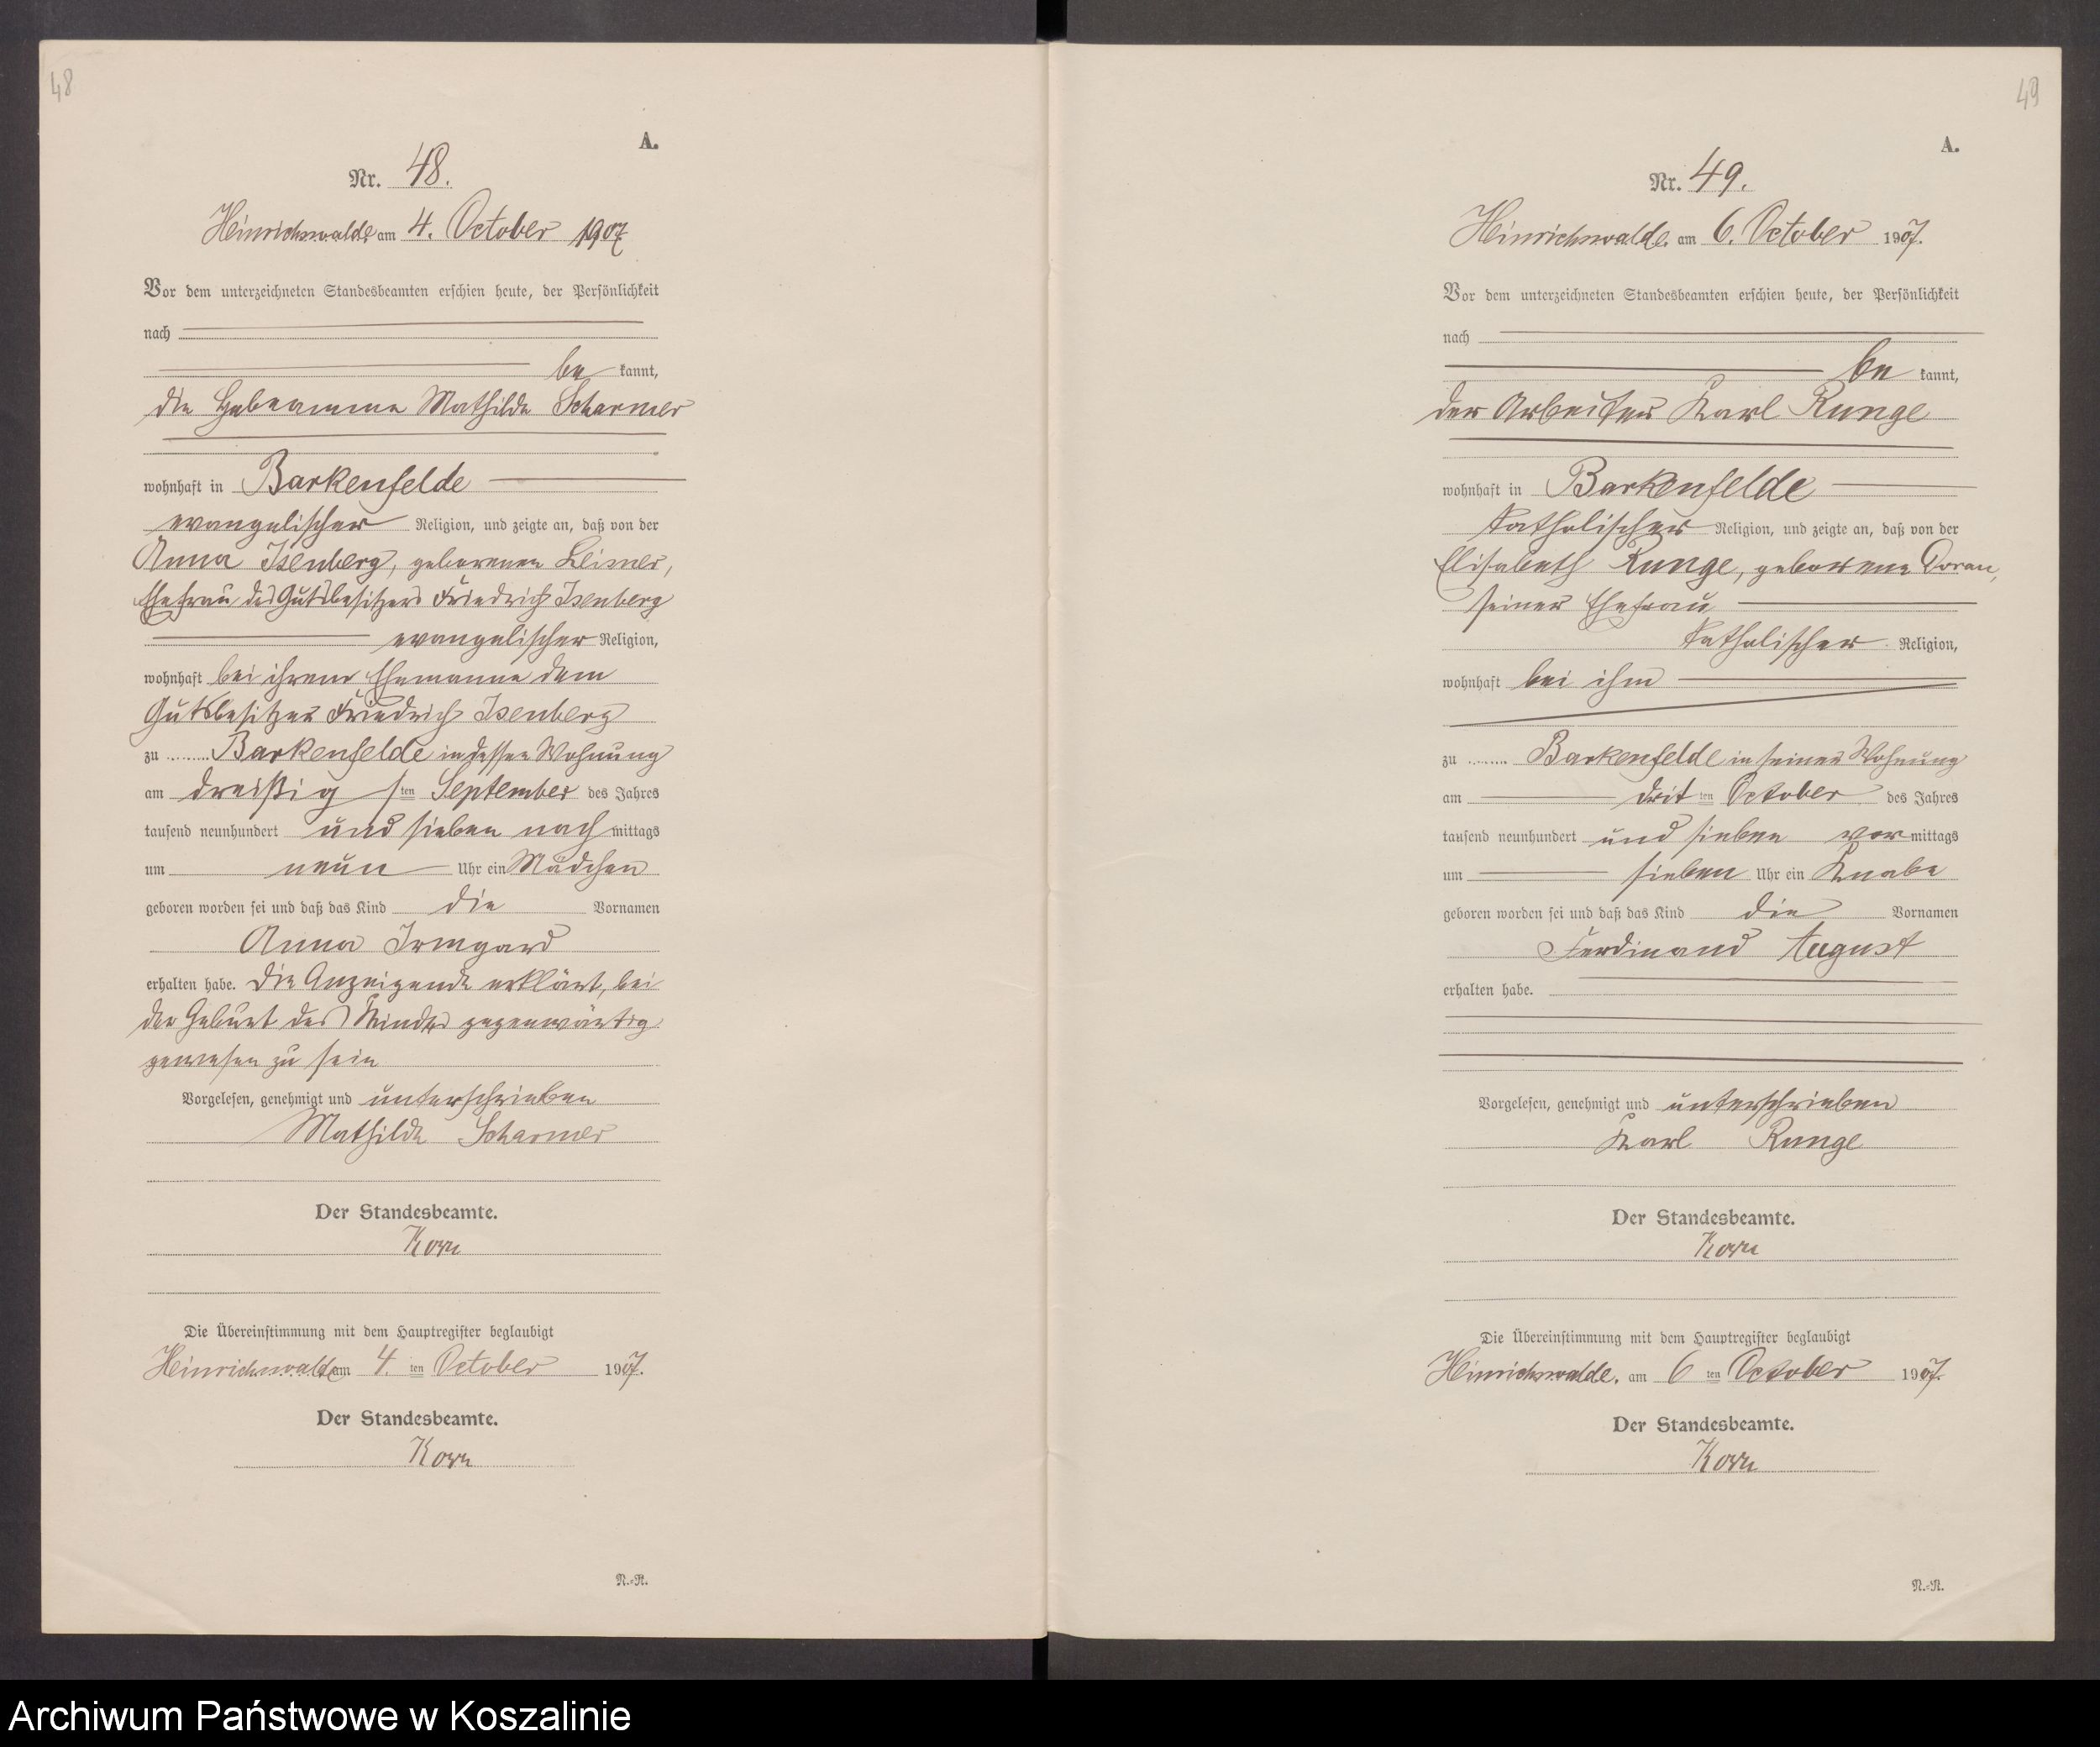 48
A.
Nr. 48.
Heinrichswalde am 4. October 1907
Vor dem unterzeichneten Standesbeamten erschien heute, der Persönlichkeit
nach
be kannt,
die Hebeamme Mathilde Scharmer
wohnhaft in Barkenfelde
evangelischer Religion, und zeigte an, daß von der
Anna Isenberg, geborenen
Ehefrau des Gutsbesitzers Friedrich Isenberg
evangelischer Religion,
wohnhaft bei ihrem Ehemanne dem
Gutsbesitzer Friedrich Isenberg
zu Barkenfelde in dessen Wohnung
am dreißig s ten September des Jahres
tausend neunhundert und sieben nach mittags
um neun Uhr ein Mädchen
geboren worden sei und daß das Kind die Vornamen
Anna Irmgard
erhalten habe. Die Anzeigende erklärt, bei
der Geburt des Kindes gegenwärtig
gewesen zu sein
Vorgelesen, genehmigt und unterschrieben
Mathilde Scharmer
Der Standesbeamte.
Korn
Die Übereinstimmung mit dem Hauptregister beglaubigt
Heinrichswalde am 4. ten October 1907.
Der Standesbeamte.
Korn
N.-R.
49
A.
Nr. 49.
Heinrichswalde. am 6. October 1907.
Vor dem unterzeichneten Standesbeamten erschien heute, der Persönlichkeit
nach
be kannt,
der Arbeiter Karl Runge
wohnhaft in Barkenfelde
katholischer Religion, und zeigte an, daß von der
Elisabeth Runge, geborene Doran,
seiner Ehefrau
katholischer Religion,
wohnhaft bei ihm
zu Barkenfelde in seiner Wohnung
am drit ten October des Jahres
tausend neunhundert und sieben vor mittags
um sieben Uhr ein Knabe
geboren worden sei und daß das Kind die Vornamen
Ferdinand August
erhalten habe.
Vorgelesen, genehmigt und unterschrieben
Karl Runge
Der Standesbeamte.
Korn
Die Übereinstimmung mit dem Hauptregister beglaubigt
Heinrichswalde. am 6 ten October 1907.
Der Standesbeamte.
Korn
N.-R.
Archiwum Państwowe w Koszalinie